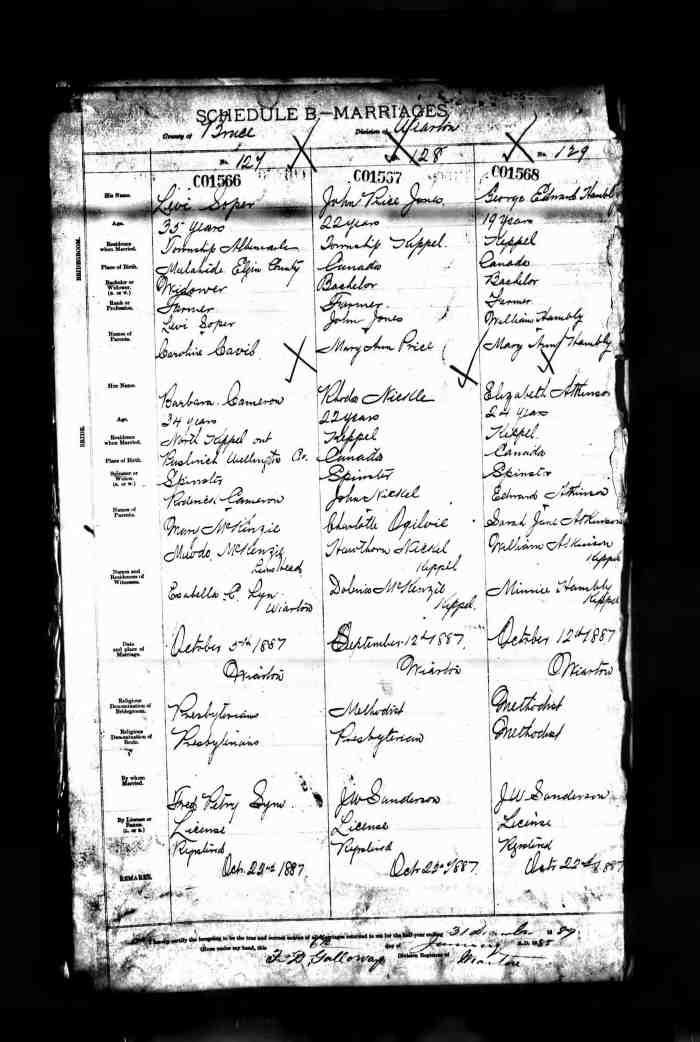 SCHEDULE B—MARRIAGES
County of Bruce Division of Wiarton
No. 127 No. 128 No. 129
C01566 C01567 C01568
BRIDEGROOM.
His Name. Levi Soper John Price Jones George Edward Hambly
Age. 35 years 22 years 19 years
Residence when Married. Township Albemarle Township Keppel. Keppel
Place of Birth. Malahide Elgin County Canada Canada
Bachelor or Widower. (B. or W.) Widower Bachelor Bachelor
Rank or Profession. Farmer Farmer. Farmer
Names of Parents. Levi Soper John Jones William Hambly
Caroline Mary Ann Price Mary Ann Hambly
BRIDE.
Her Name. Barbara Cameron Rhoda Nickle Elizabeth Atkinson
Age. 34 years 22 years 24 years
Residence when Married. North Keppel ont Keppel Keppel.
Place of Birth. Wellington Co. Canada Canada
Spinster or Widow. (S. or W.) Spinster Spinster Spinster
Names of Parents. Roderick Cameron John Nickel Edward Atkinson
Mary McKenzie Charlotte Ogilvie Sarah Jane Atkinson
Names and Residences of Witnesses. Murdo McKenzie Hawthorn Nickel William Atkinson
Keppel Keppel
Esabella C. Lyn Dolerics McKenzie Minnie Hambly
Wiarton Keppel. Keppel
Date and place of Marriage. October 5th 1887 September 12th 1887. October 12th 1887
Wiarton Wiarton Wiarton
Religious Denomination of Bridegroom. Presbyterians Methodist Methodist
Religious Denomination of Bride. Presbyterians Presbyterian Methodist
By whom Married. Fred Petry Lynn J W Sanderson J W Sanderson
By License or Banns. (L. or B.) License License License
REMARKS. Registered Registered Registered
Oct. 22nd 1887. Oct 22nd 1887. Oct 22nd 1887
I hereby certify the foregoing to be the true and correct entries of all Marriages returned to me for the half year ending 31 December 1887
Given under my hand, this day of January A.D. 1888
F B Galloway Division Registrar of Wiarton